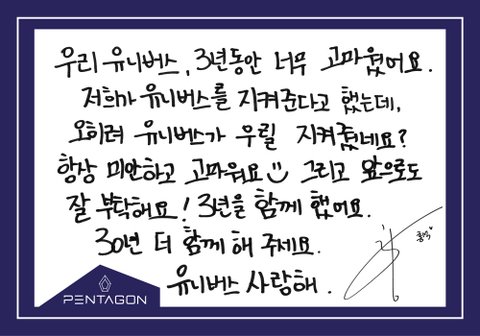 우리 유니버스, 3년동안 너무 고마웠어요.
저희가 유니버스를 지켜준다고 했는데,
오히려 유니버스가 우릴 지켜줬네요?
항상 미안하고 고마워요 그리고 앞으로도
잘 부탁해요! 3년을 함께 했어요.
30년 더 함께 해 주세요.
유니버스 사랑해.
홍석
PENTAGON